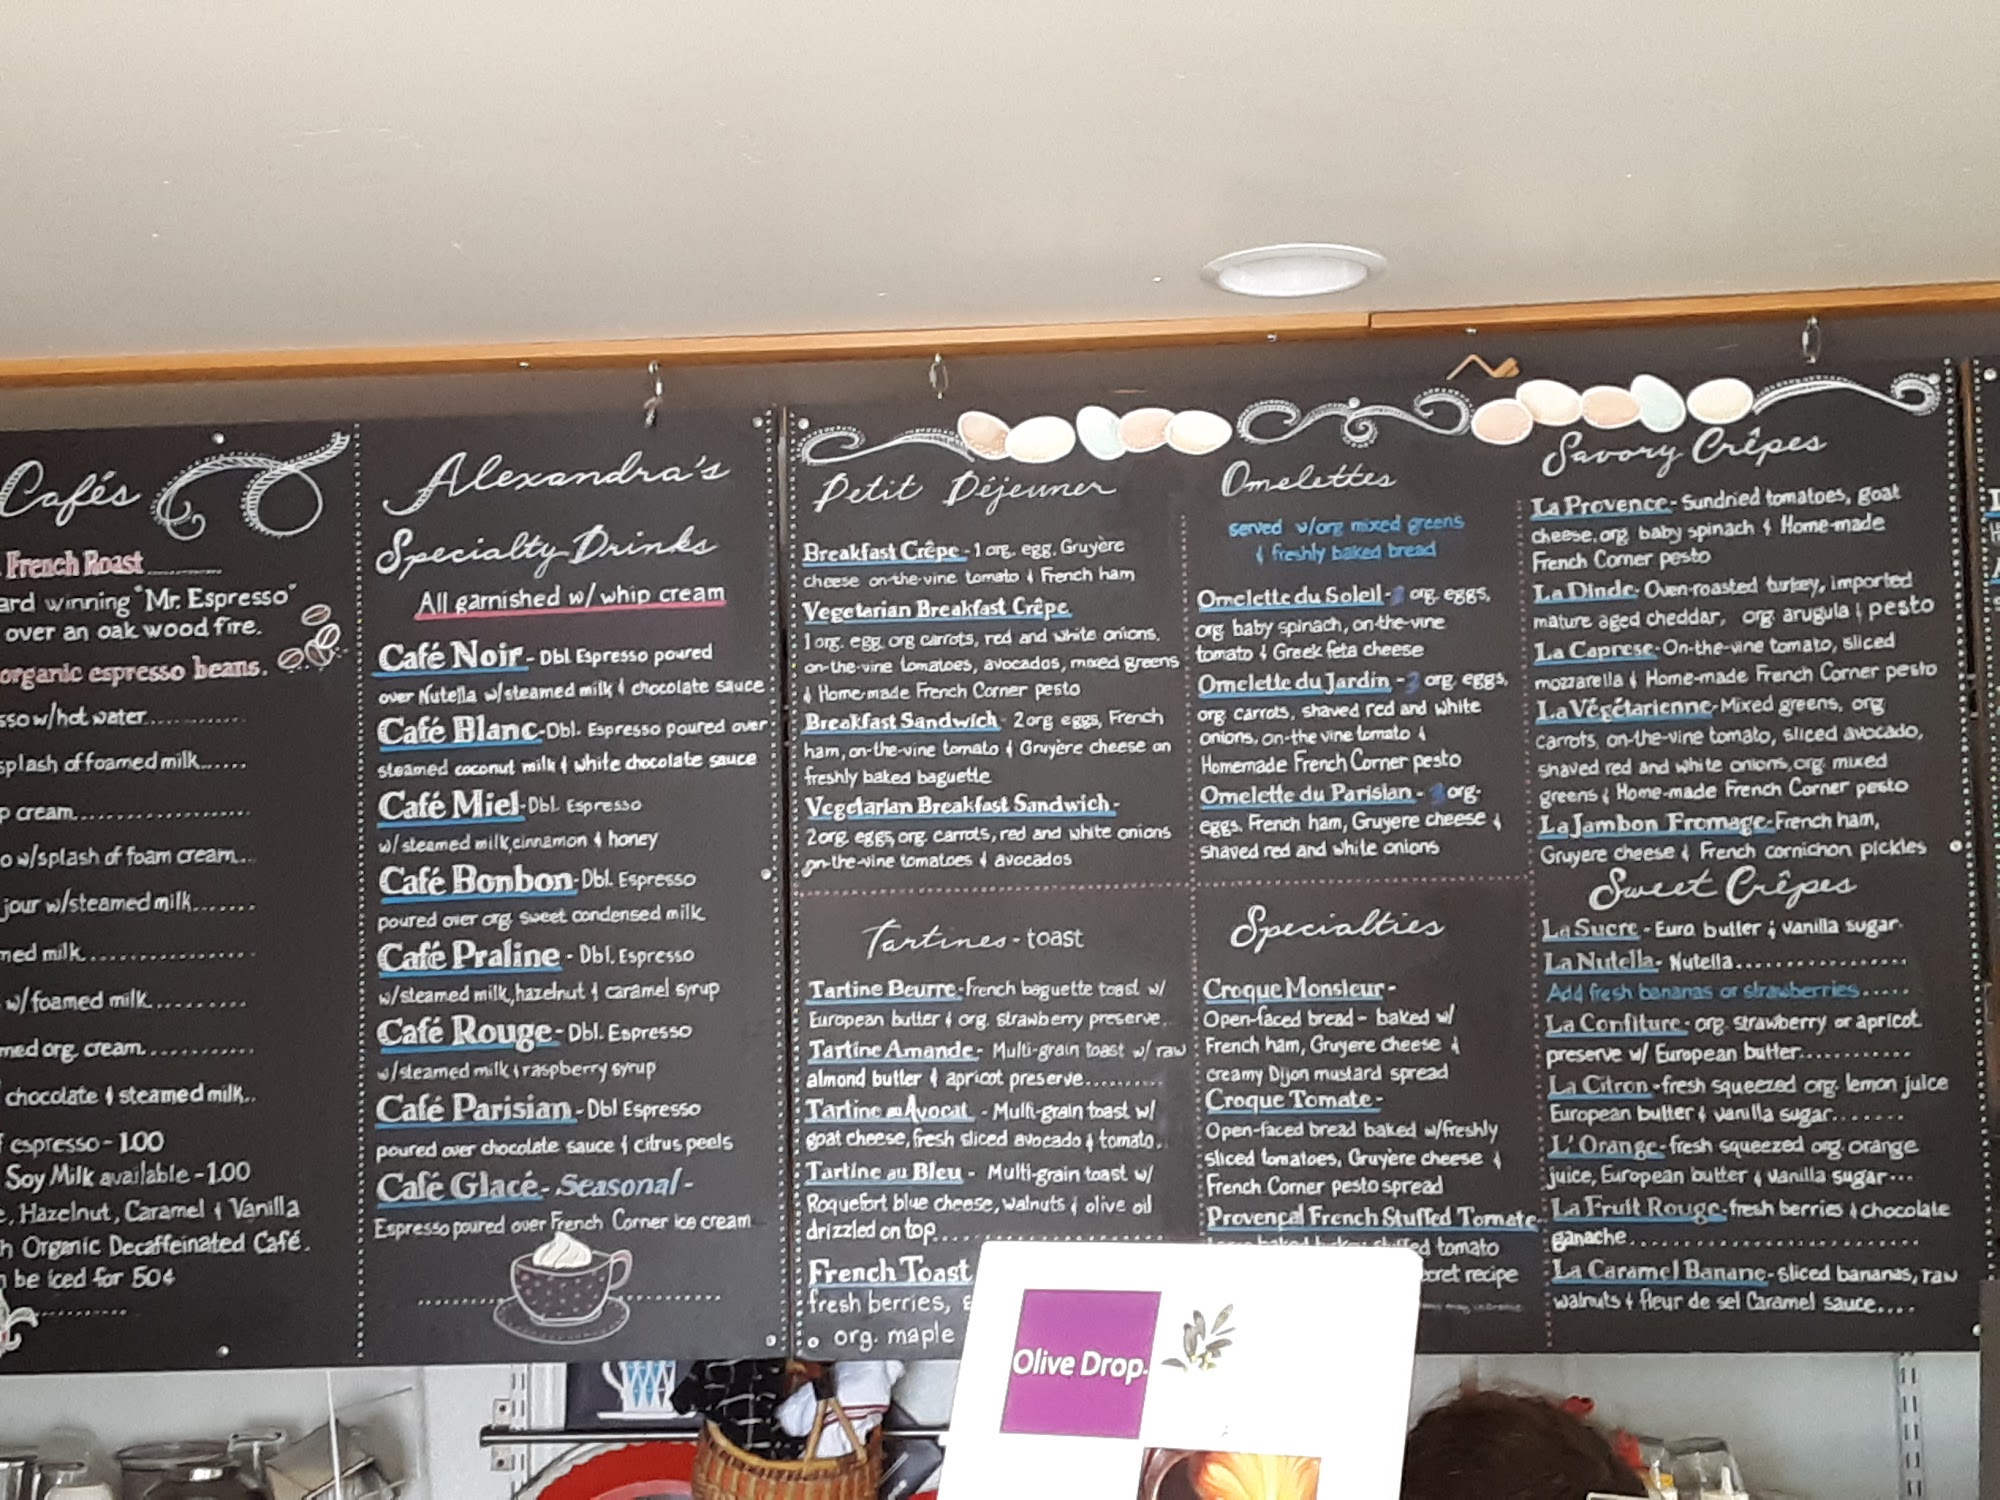 Cafés
French Roast
ard winning "Mr. Espresso"
over an oak wood fire.
organic espresso beans.
sso w/hot water
splash of foamed milk
p cream
o w/splash of foam cream
jour w/steamed milk
med milk
w/foamed milk
med org. cream
chocolate & steamed milk
espresso - 1.00
Soy Milk available - 1.00
, Hazelnut, Caramel & Vanilla
h Organic Decaffeinated Café.
n be iced for 50¢
Alexandra's
Specialty Drinks
All garnished w/ whip cream
Café Noir - Dbl. Espresso poured
over Nutella w/steamed milk & chocolate sauce
Café Blanc - Dbl. Espresso poured over
steamed coconut milk & white chocolate sauce
Café Miel - Dbl. Espresso
w/ steamed milk, cinnamon & honey
Café Bonbon - Dbl. Espresso
poured over org. sweet condensed milk
Café Praline - Dbl. Espresso
w/steamed milk, hazelnut & caramel syrup
Café Rouge - Dbl. Espresso
w/steamed milk & raspberry syrup
Café Parisian - Dbl Espresso
poured over chocolate sauce & citrus peels
Café Glacé - Seasonal -
Espresso poured over French Corner ice cream
Petit Déjeuner
Breakfast Crêpe - 1 org. egg. Gruyère
cheese on-the-vine tomato & French ham
Vegetarian Breakfast Crêpe
1 org. egg, org carrots, red and white onions,
on-the-vine tomatoes, avocados, mixed greens
& Home-made French Corner pesto
Breakfast Sandwich - 2 org eggs, French
ham, on-the-vine tomato & Gruyère cheese on
freshly baked baguette
Vegetarian Breakfast Sandwich -
2 org. eggs, org. carrots, red and white onions
on-the-vine tomatoes & avocados
Tartines - toast
Tartine Beurre - French baguette toast w/
European butter & org. strawberry preserve
Tartine Amande - Multi-grain toast w/ raw
almond butter & apricot preserve
Tartine au Avocat - Multi-grain toast w/
goat cheese, fresh sliced avocado & tomato
Tartine au Bleu - Multi-grain toast w/
Roquefort blue cheese, walnuts & olive oil
drizzled on top
French Toast
fresh berries,
org. maple
Omelettes
served w/org mixed greens
& freshly baked bread
Omelette du Soleil - 3 org. eggs,
org. baby spinach, on-the-vine
tomato & Greek feta cheese
Omelette du Jardin - 3 org. eggs,
org. carrots, shaved red and white
onions, on-the vine tomato &
Homemade French Corner pesto
Omelette du Parisian - 3 org.
eggs, French ham, Gruyere cheese &
shaved red and white onions
Specialties
Croque Monsieur -
Open-faced bread - baked w/
French ham, Gruyere cheese &
creamy Dijon mustard spread
Croque Tomate -
Open-faced bread baked w/freshly
sliced tomatoes, Gruyère cheese &
French Corner pesto spread
Provençal French Stuffed Tomate
tomato
recipe
Savory Crêpes
La Provence - Sundried tomatoes, goat
cheese, org. baby spinach & Home-made
French Corner pesto
La Dinde - Oven-roasted turkey, imported
mature aged cheddar, org. arugula & pesto
La Caprese - On-the-vine tomato, sliced
mozzarella & Home-made French Corner pesto
La Végétarienne - Mixed greens, org
carrots, on-the-vine tomato, sliced avocado,
shaved red and white onions, org. mixed
greens & Home-made French Corner pesto
La Jambon Fromage - French ham,
Gruyere cheese & French cornichon pickles
Sweet Crêpes
La Sucre - Euro butter & vanilla sugar
La Nutella - Nutella
Add fresh bananas or strawberries
La Confiture - org. strawberry or apricot
preserve w/ European butter
La Citron - fresh squeezed org. lemon juice
European butter & vanilla sugar
L'Orange - fresh squeezed org. orange
juice, European butter & vanilla sugar
La Fruit Rouge - fresh berries & chocolate
ganache
La Caramel Banane - sliced bananas, raw
walnuts & fleur de sel Caramel sauce
Olive Drop